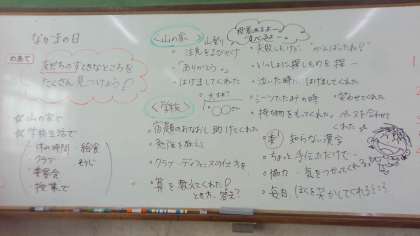 なかまの日
めあて
友だちのすてきなところを
たくさん見つけよう!
☆山の家で
☆学校生活で
休み時間・給食
クラブ そうじ
委員会
授業で
<山の家> 山登り
・注意をよびかけ
・「ありがとう。」
・はげましてくれた
・失敗したけど、「がんばったね」
・いっしょに探しものを探…
・泣いた時に、はげましてくれた
・シーツたたみの時
・笑わせてくれた
・荷物をもってくれた
・ペースを合わせてくれた
<学校>
・宿題のおなおし助けてくれた
・発注を教え
・クラブ・ディフェンスのし方を
・算を教えてくれた
とき方、答え?
・漢 知らない漢字
・ちょっと手伝っただけで…
・協力 …気をつかってくれる
・毎日、ぼくを笑かしてくれるところ